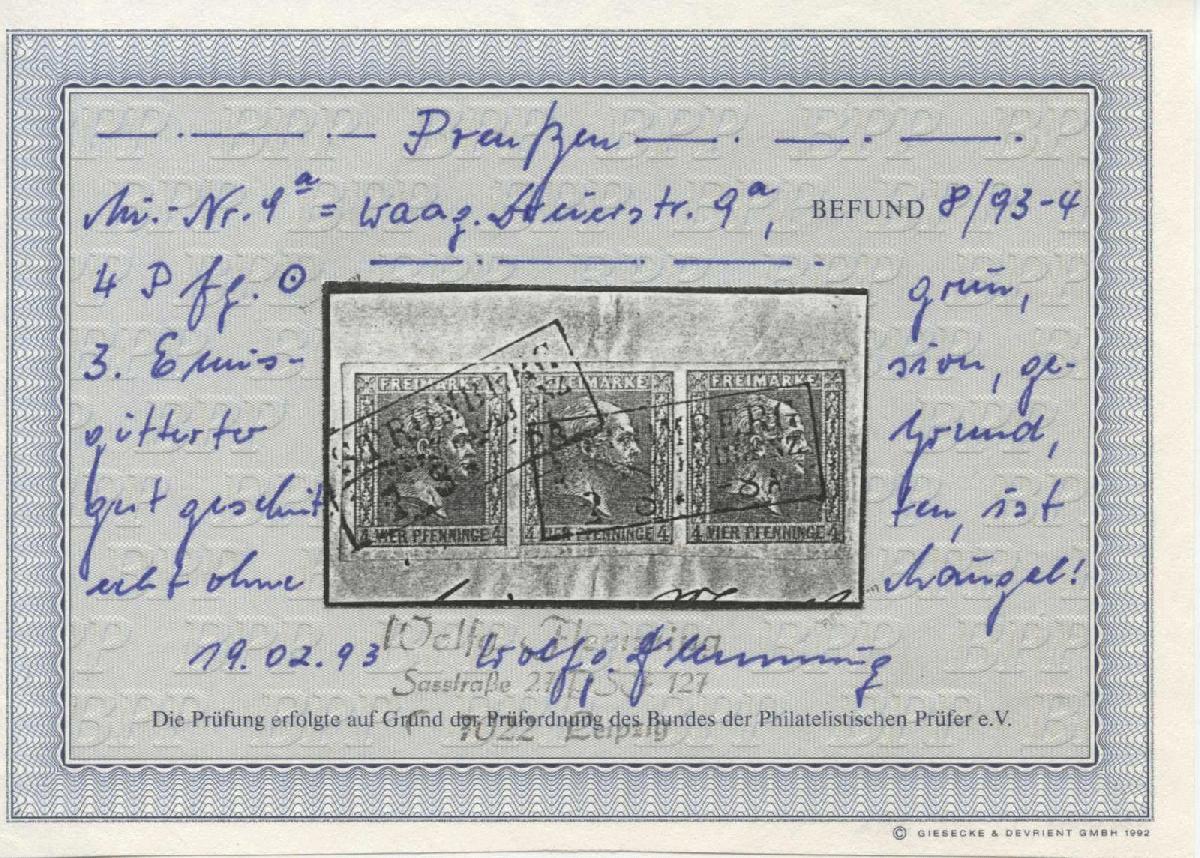 Preußen
Mi.-Nr. 9a = waag. 3er-str. 9a, BEFUND 8/93-4
4 Pfg. ⊙ grün,
3. Emis- sion, ge-
gitterter Grund,
gut geschnit ten, ist
echt ohne Mängel!
FREIMARKE FREIMARKE FREIMARKE
4 VIER PFENNINGE 4 4 VIER PFENNINGE 4 4 VIER PFENNINGE 4
19.02.93 Wolfg. Flemming
Wolfg. Flemming
Sasstraße 127
7022 Leipzig
Die Prüfung erfolgte auf Grund der Prüfordnung des Bundes der Philatelistischen Prüfer e.V.
© GIESECKE & DEVRIENT GMBH 1992